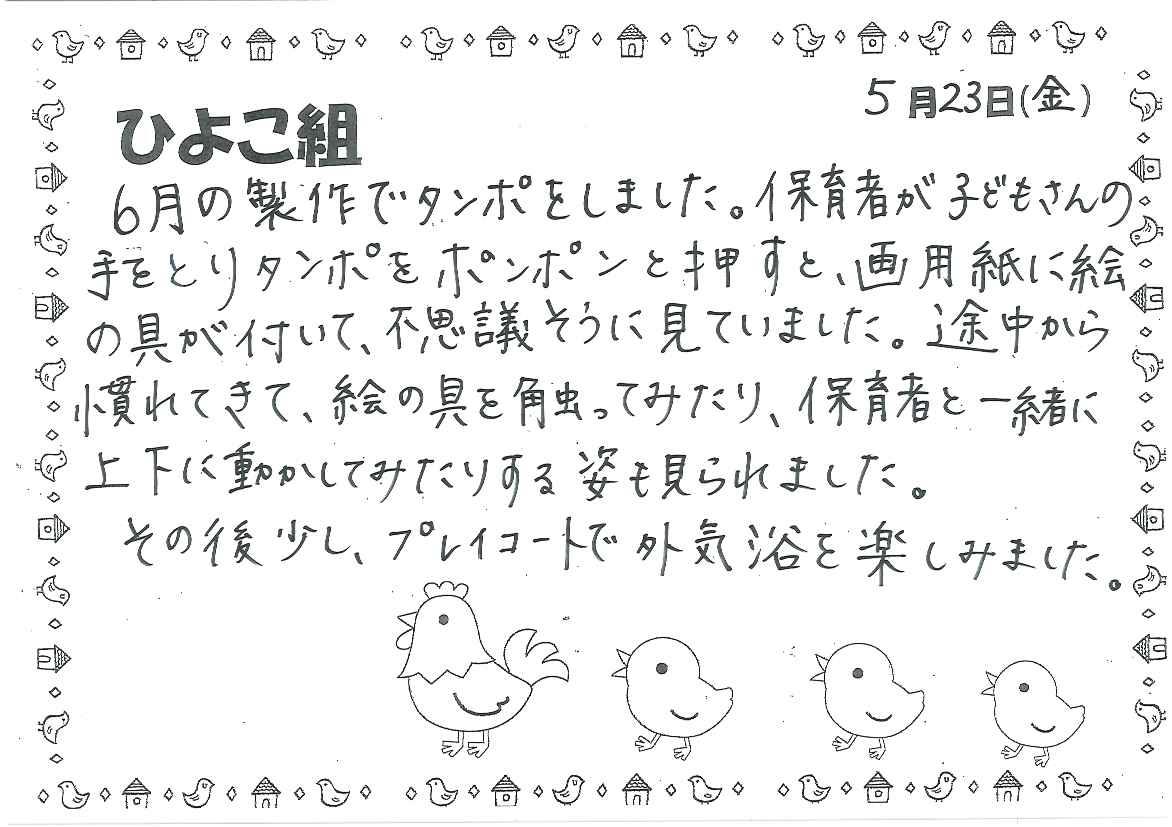 5月23日(金)
ひよこ組
6月の製作でタンポをしました。保育者が子どもさんの
手をとりタンポをポンポンと押すと、画用紙に絵
の具が付いて、不思議そうに見ていました。途中から
慣れてきて、絵の具を触ってみたり、保育者と一緒に
上下に動かしてみたりする姿も見られました。
その後少し、プレイコートで外気浴を楽しみました。